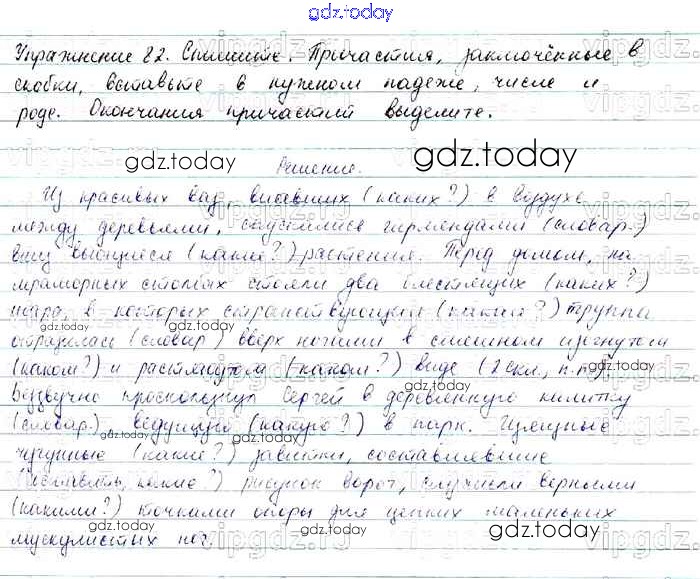 gdz.today
Упражнение 82. Спишите. Причастия, заключённые в
скобки, вставьте в нужном падеже, числе и
роде. Окончания причастий выделите.
gdz.today
gdz.today
Решение.
Из красивых ваз, висевших (каких?) в воздухе
между деревьями, спустились гирляндами (словар.)
вниз вьющиеся (какие?) растения. Перед домом, на
мраморных столбах стояли два блестящих (каких?)
шара, в которых странствующая (какая?) труппа
gdz.today
gdz.today
отразилась (словар.) вверх ногами в смешном изогнутом
(каком?) и растянутом (каком?) виде (2 скл., п.п.).
gdz.today
gdz.today
Беззвучно проскользнул Сергей в деревянную калитку
(словар.) ведущую (какую?) в парк.
gdz.today
gdz.today
чугунные (какие?) завитки, составлявшие
(составлять, какие?) рисунок ворот, служили верными
(какими?) точками опоры для цепких маленьких
gdz.today
gdz.today
мускулистых ног.
gdz.today
gdz.today